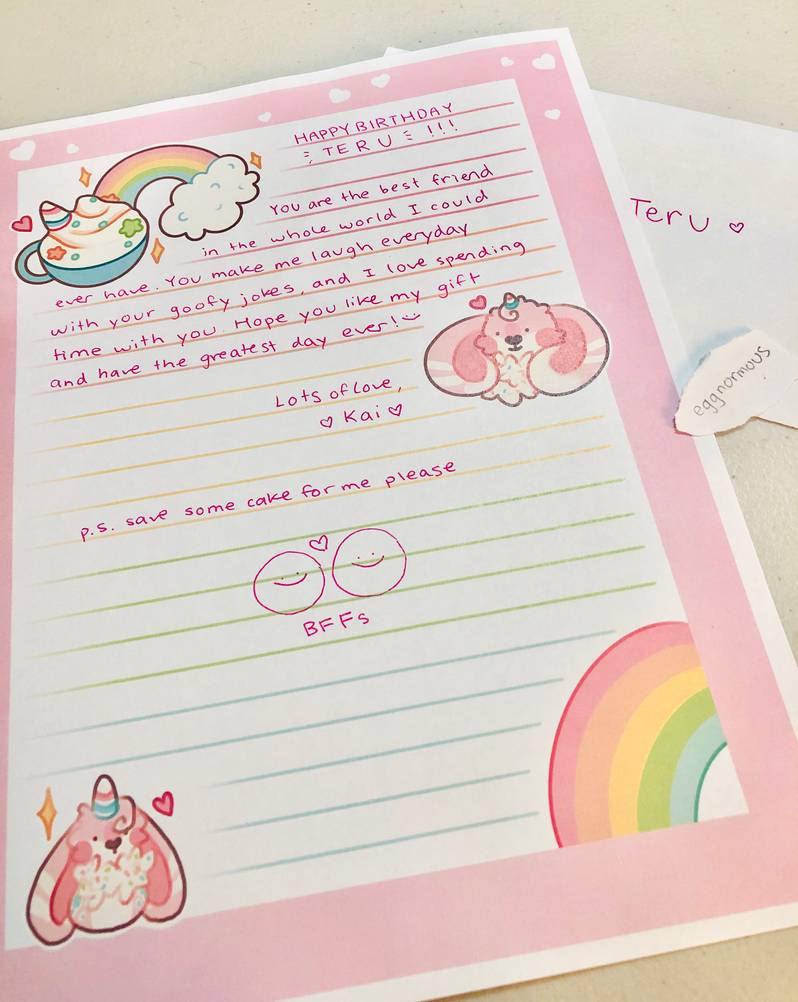 HAPPY BIRTHDAY
TERU !!!
You are the best friend
in the whole world I could
ever have. You make me laugh everyday
with your goofy jokes, and I love spending
time with you. Hope you like my gift
and have the greatest day ever!
Lots of love,
♡ Kai ♡
p.s. save some cake for me please
BFFs
Teru ♡
eggnormous